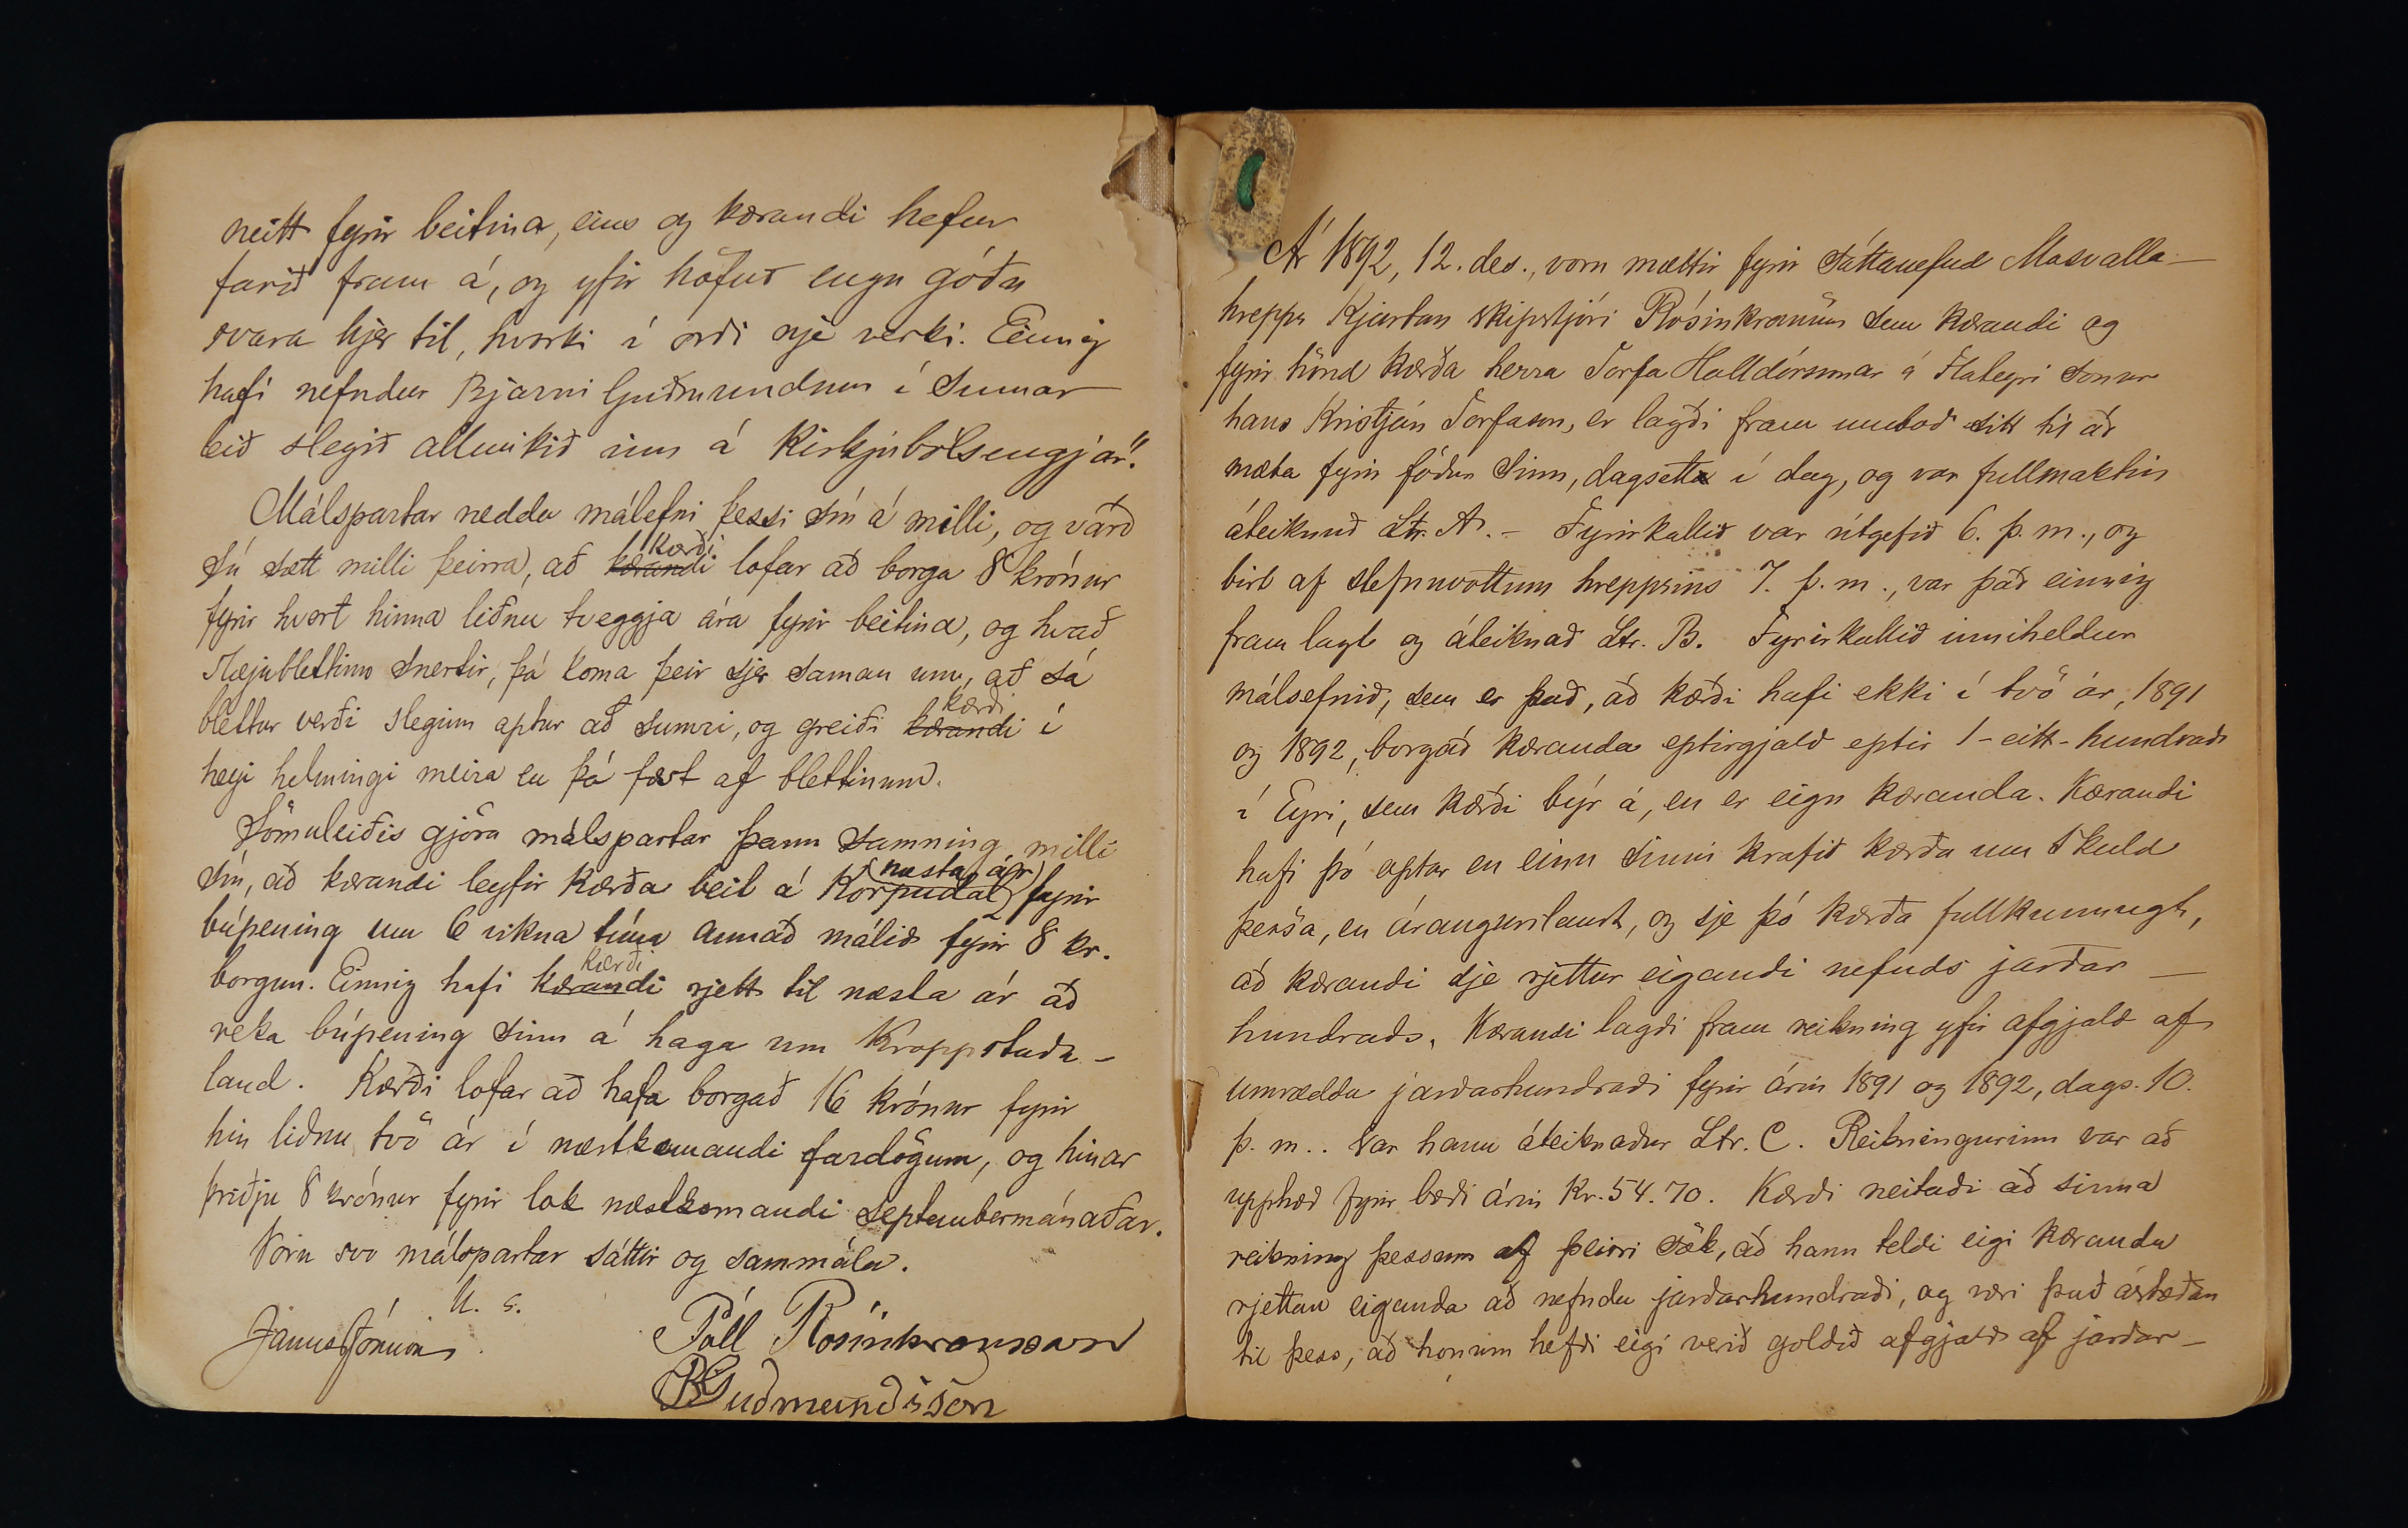 neitt fyrir beitina, eins og kærandi hefur
farið fram á, og yfir höfuð engu góðu
svara hjer til, hvorki í orði nje verki. Einnig
hafi nefndur Bjarni Guðmundsson í sumar
leið slegið allmikið inn á Kirkjubólsengjar".
Málspartar ræddu málefni þessi sín á milli, og varð
sú sætt milli þeirra, að kærandi kærði lofar að borga 8 krónur
fyrir hvort hinna liðnu tveggja ára fyrir beitina, og hvað
blettinn snertir, þá koma þeir sjer saman um, að sá
blettur verði sleginn aptur að sumri, og greiði kærandi kærði í
heyi helmingi meira en þá fæst af blettinum.
Sömuleiðis gjöra málspartar þann samning milli
sín, að kærandi leyfir kærða beit á Korpudal (næsta ár) fyrir
búpening um 6 vikna tíma annað málið fyrir 8 kr.
borgun. Einnig hafi kærandi kærði rjett til næsta ár að
reka búpening sinn á haga um Kroppstaða-
land. Kærði lofar að hafa borgað 16 krónur fyrir
hin liðnu tvö ár í næstkomandi fardögum, og hinar
þriðju 8 krónur fyrir lok næstkomandi septembermánaðar.
Voru svo málspartar sáttir og sammála.
U. s.
Janus Jónsson
Páll Rósinkransson
BGuðmundsson
Ár 1892, 12. des., voru mættir fyrir sáttanefnd Mosvalla-
hrepps Kjartan skipstjóri Rósinkransson sem kærandi og
fyrir hönd kærða herra Torfa Halldórssonar á Flateyri sonur
hans Kristján Torfason, er lagði fram umboð sitt til að
mæta fyrir föður sinn, dagsett í dag, og var fullmaktin
áteiknuð Ltr. A. - Fyrirkallið var útgefið 6. þ. m., og
birt af stefnuvottum hreppsins 7. þ. m., var það einnig
fram lagt og áteiknað Ltr. B. Fyrirkallið inniheldur
málsefnið, sem er það, að kærði hafi ekki í tvö ár, 1891
og 1892, borgað kæranda eptirgjald eptir 1 - eitt - hundrað
í Eyri, sem kærði býr á, en er eign kæranda. Kærandi
hafi þó optar en einu sinni krafið kærða um skuld
þessa, en árangurslaust, og sje þó kærða fullkunnugt,
að kærandi sje rjettur eigandi nefnds jarðar-
hundraðs. Kærandi lagði fram reikning yfir afgjald af
umræddu jarðarhundraði fyrir árin 1891 og 1892, dags. 10.
þ. m.. Var hann áteiknaður Ltr. C. Reikningurinn var að
upphæð fyrir bæði árin Kr. 54.70. Kærði neitaði að sinna
reikning þessum af þeirri sök, að hann teldi eigi kæranda
rjettan eiganda að nefndu jarðarhundraði, og væri það ástæðan
til þess, að honum hefði eigi verið goldið afgjald af jarðar-